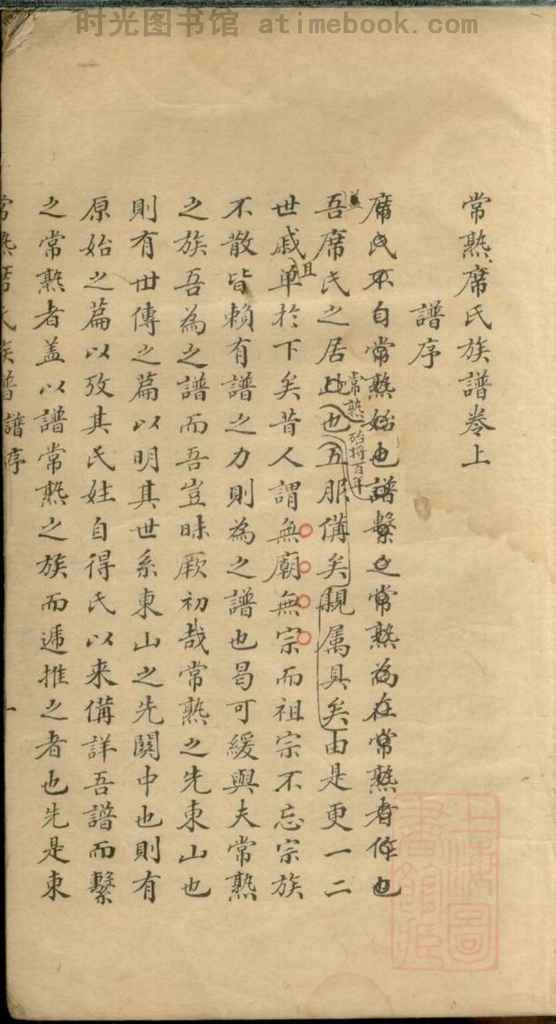 时光图书馆 atimebook.com
常熟席氏族譜卷上
譜序
席氏不自常熟始也譜繫之常熟為在常熟者作也
吾席氏之居此也五服備矣親属具矣由是更一二
常熟
殆將百年
世戚單於下矣昔人謂無廟無宗而祖宗不忘宗族
且
不散皆賴有譜之力則為之譜也曷可緩與夫常熟
之族吾為之譜而吾豈昧厥初哉常熟之先東山也
則有世傳之篇以明其世系東山之先關中也則有
原始之篇以攷其氏姓自得氏以来備詳吾譜而繫
之常熟者盖以譜常熟之族而遞推之者也先是東
常熟席氏族譜 譜序 一